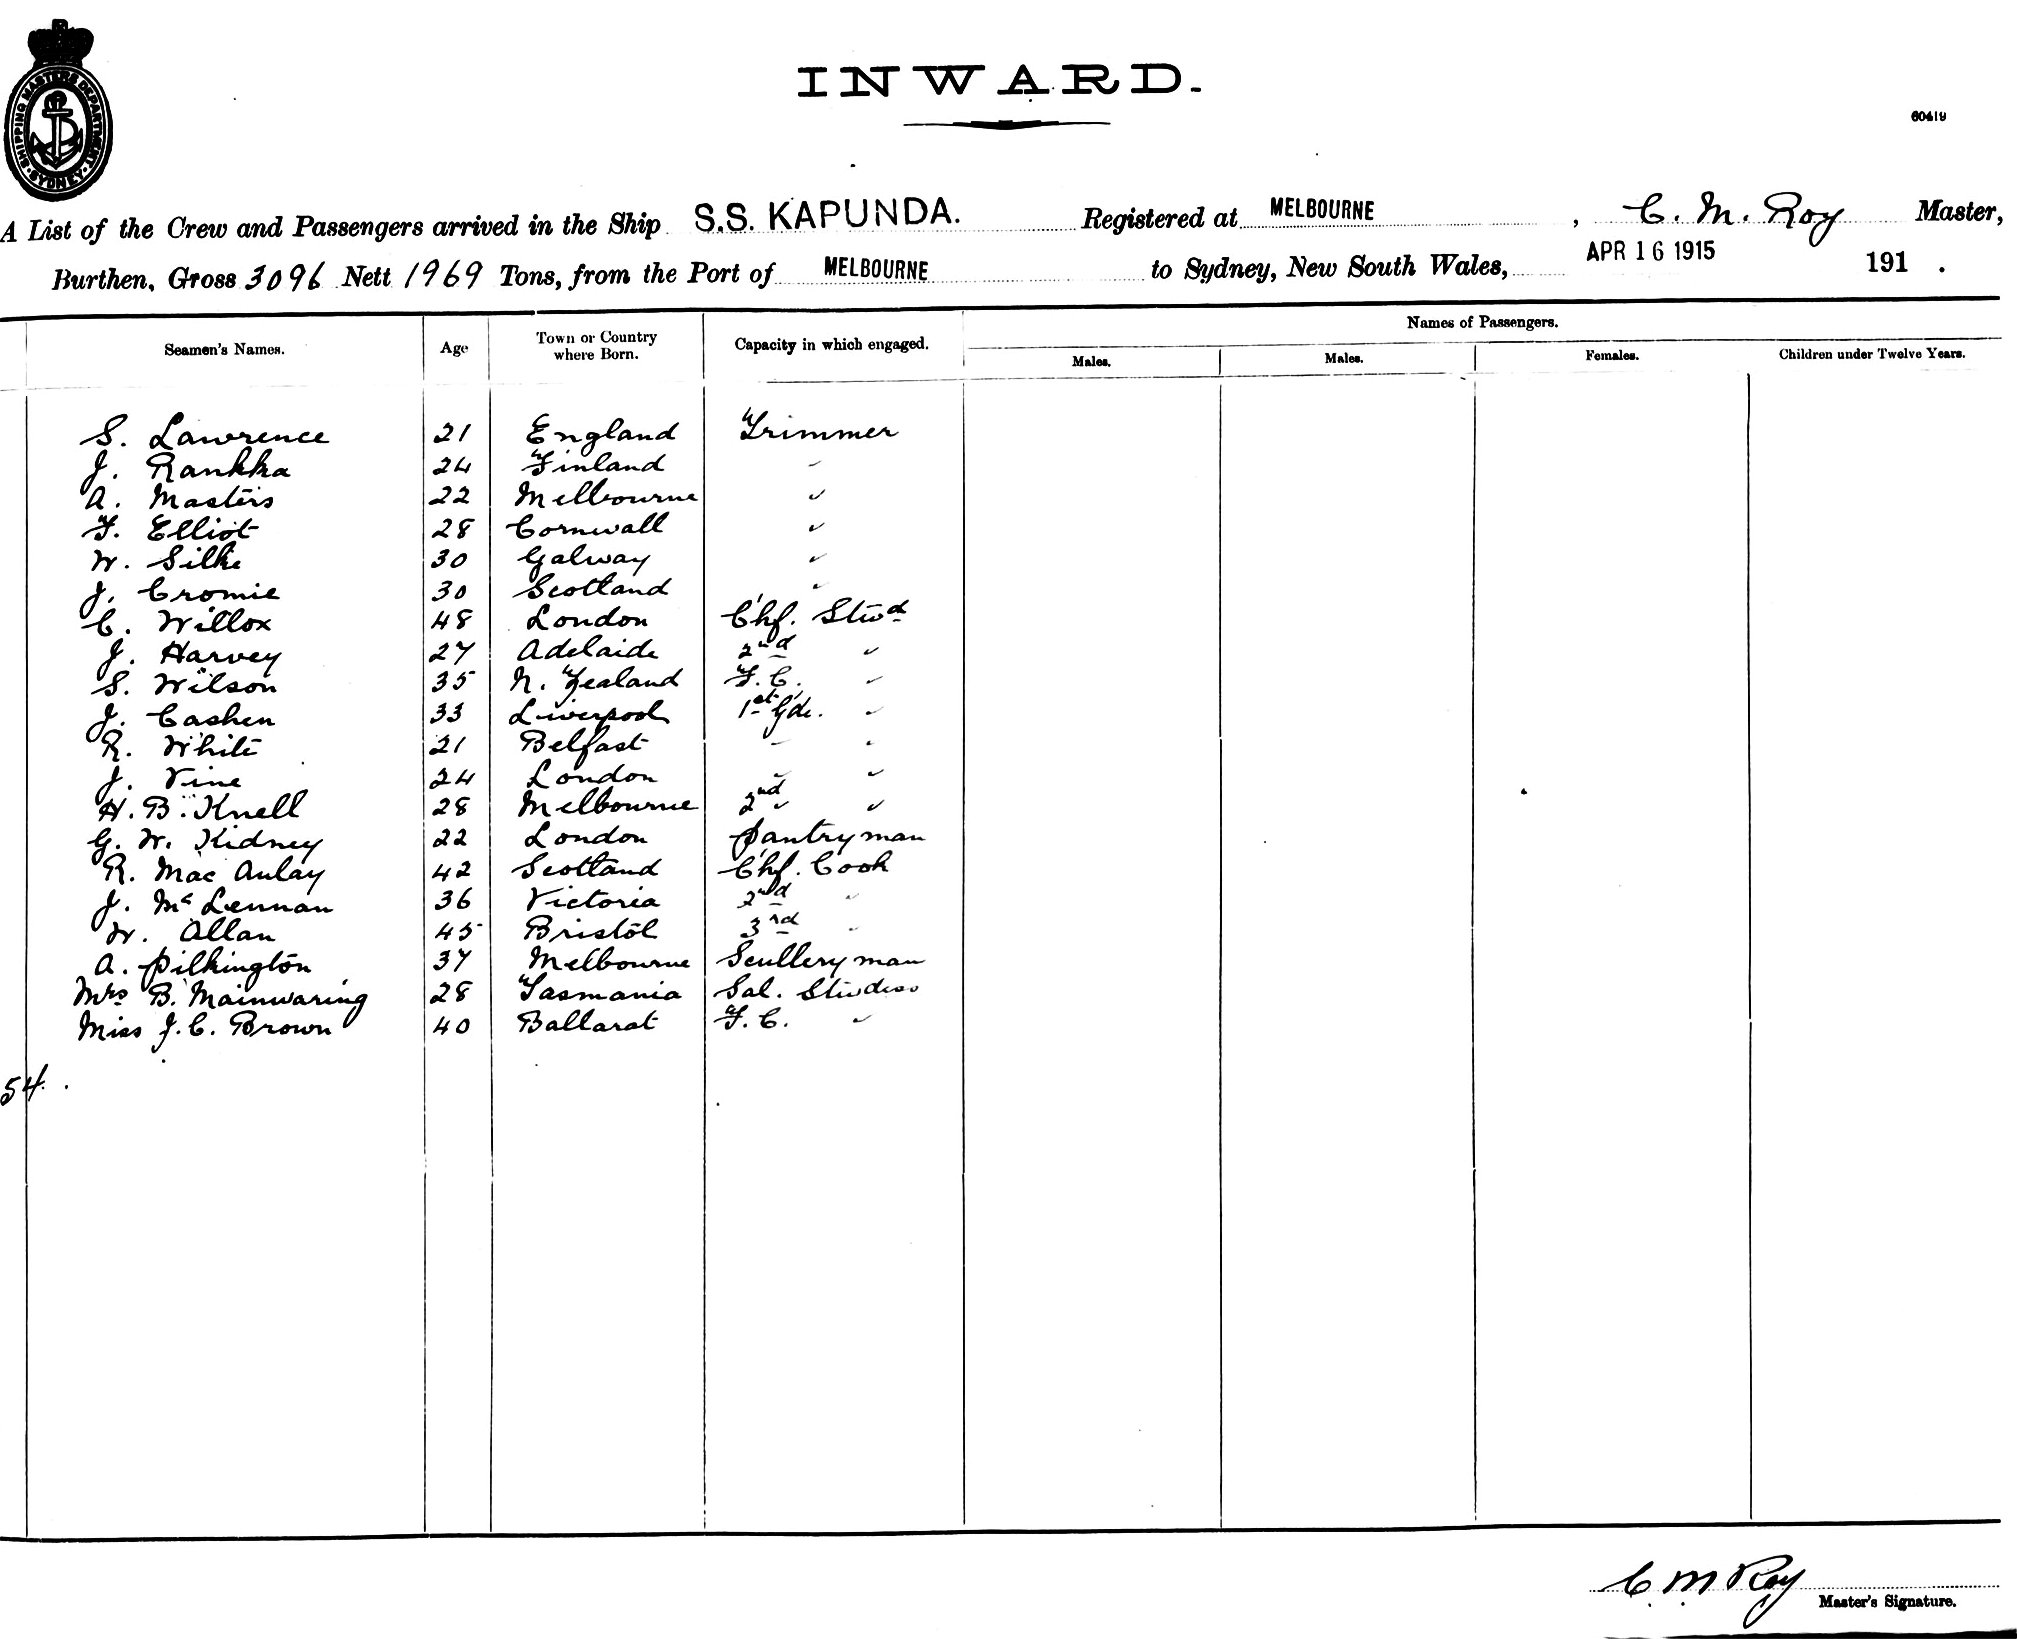 SHIPPING MASTERS DEPARTMENT · SYDNEY ·
INWARD.
60419
A List of the Crew and Passengers arrived in the Ship S.S. KAPUNDA. Registered at MELBOURNE, C. M. Roy Master,
Burthen, Gross 3096 Nett 1969 Tons, from the Port of MELBOURNE to Sydney, New South Wales, APR 16 1915 191 .
Names of Passengers.
Seamen's Names. Age Town or Country where Born. Capacity in which engaged. Males. Males. Females. Children under Twelve Years.
S. Lawrence 21 England Trimmer
J. Rankka 24 Finland "
A. Masters 22 Melbourne "
F. Elliot 28 Cornwall "
W. Silke 30 Galway "
J. Cromie 30 Scotland "
C. Willox 48 London Chf. Stwd
J. Harvey 27 Adelaide 2nd "
S. Wilson 35 N. Zealand F.C. "
J. Cashen 33 Liverpool 1st Gde. "
R. White 21 Belfast " "
J. Vine 24 London " "
H. B. Knell 28 Melbourne 2nd " "
G. W. Kidney 22 London Pantryman
R. Mac Aulay 42 Scotland Chf. Cook
J. Mc Lennan 36 Victoria 2nd "
W. Allan 45 Bristol 3rd "
A. Pilkington 37 Melbourne Sculleryman
Mrs B. Mainwaring 28 Tasmania Sal. Stwdess
Miss J. C. Brown 40 Ballarat F. C. "
54.
C M Roy
Master's Signature.